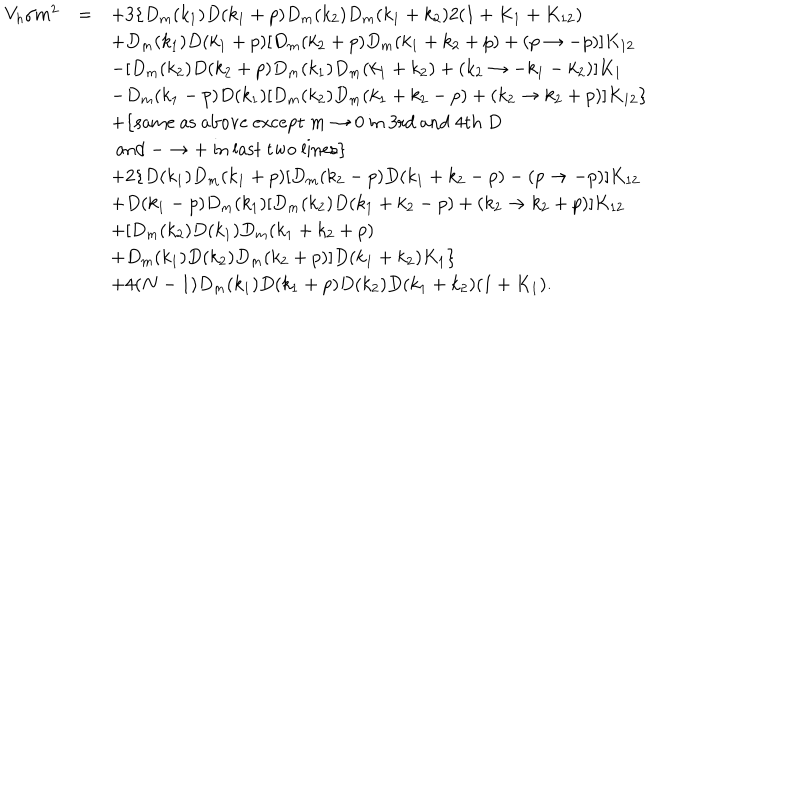 V_h σm² = +3{D_m(k₁)D(k₁ + p)D_m(k₂)D_m(k₁ + k₂)2(1 + K₁ + K₁₂)
+D_m(k₁)D(k₁ + p)[D_m(k₂ + p)D_m(k₁ + k₂ + p) + (p → −p)]K₁₂
−[D_m(k₂)D(k₂ + p)D_m(k₁)D_m(k₁ + k₂) + (k₂ → −k₁ − k₂)]K₁
−D_m(k₁ − p)D(k₁)[D_m(k₂)D_m(k₁ + k₂ − p) + (k₂ → k₂ + p)]K₁₂}
+{same as above except m → 0 in 3rd and 4th D
and − → + in last two lines}
+2{D(k₁)D_m(k₁ + p)[D_m(k₂ − p)D(k₁ + k₂ − p) − (p → −p)]K₁₂
+D(k₁ − p)D_m(k₁)[D_m(k₂)D(k₁ + k₂ − p) + (k₂ → k₂ + p)]K₁₂
+[D_m(k₂)D(k₁)D_m(k₁ + k₂ + p)
+D_m(k₁)D(k₂)D_m(k₂ + p)]D(k₁ + k₂)K₁}
+4(N − 1)D_m(k₁)D(k₁ + p)D(k₂)D(k₁ + k₂)(1 + K₁).